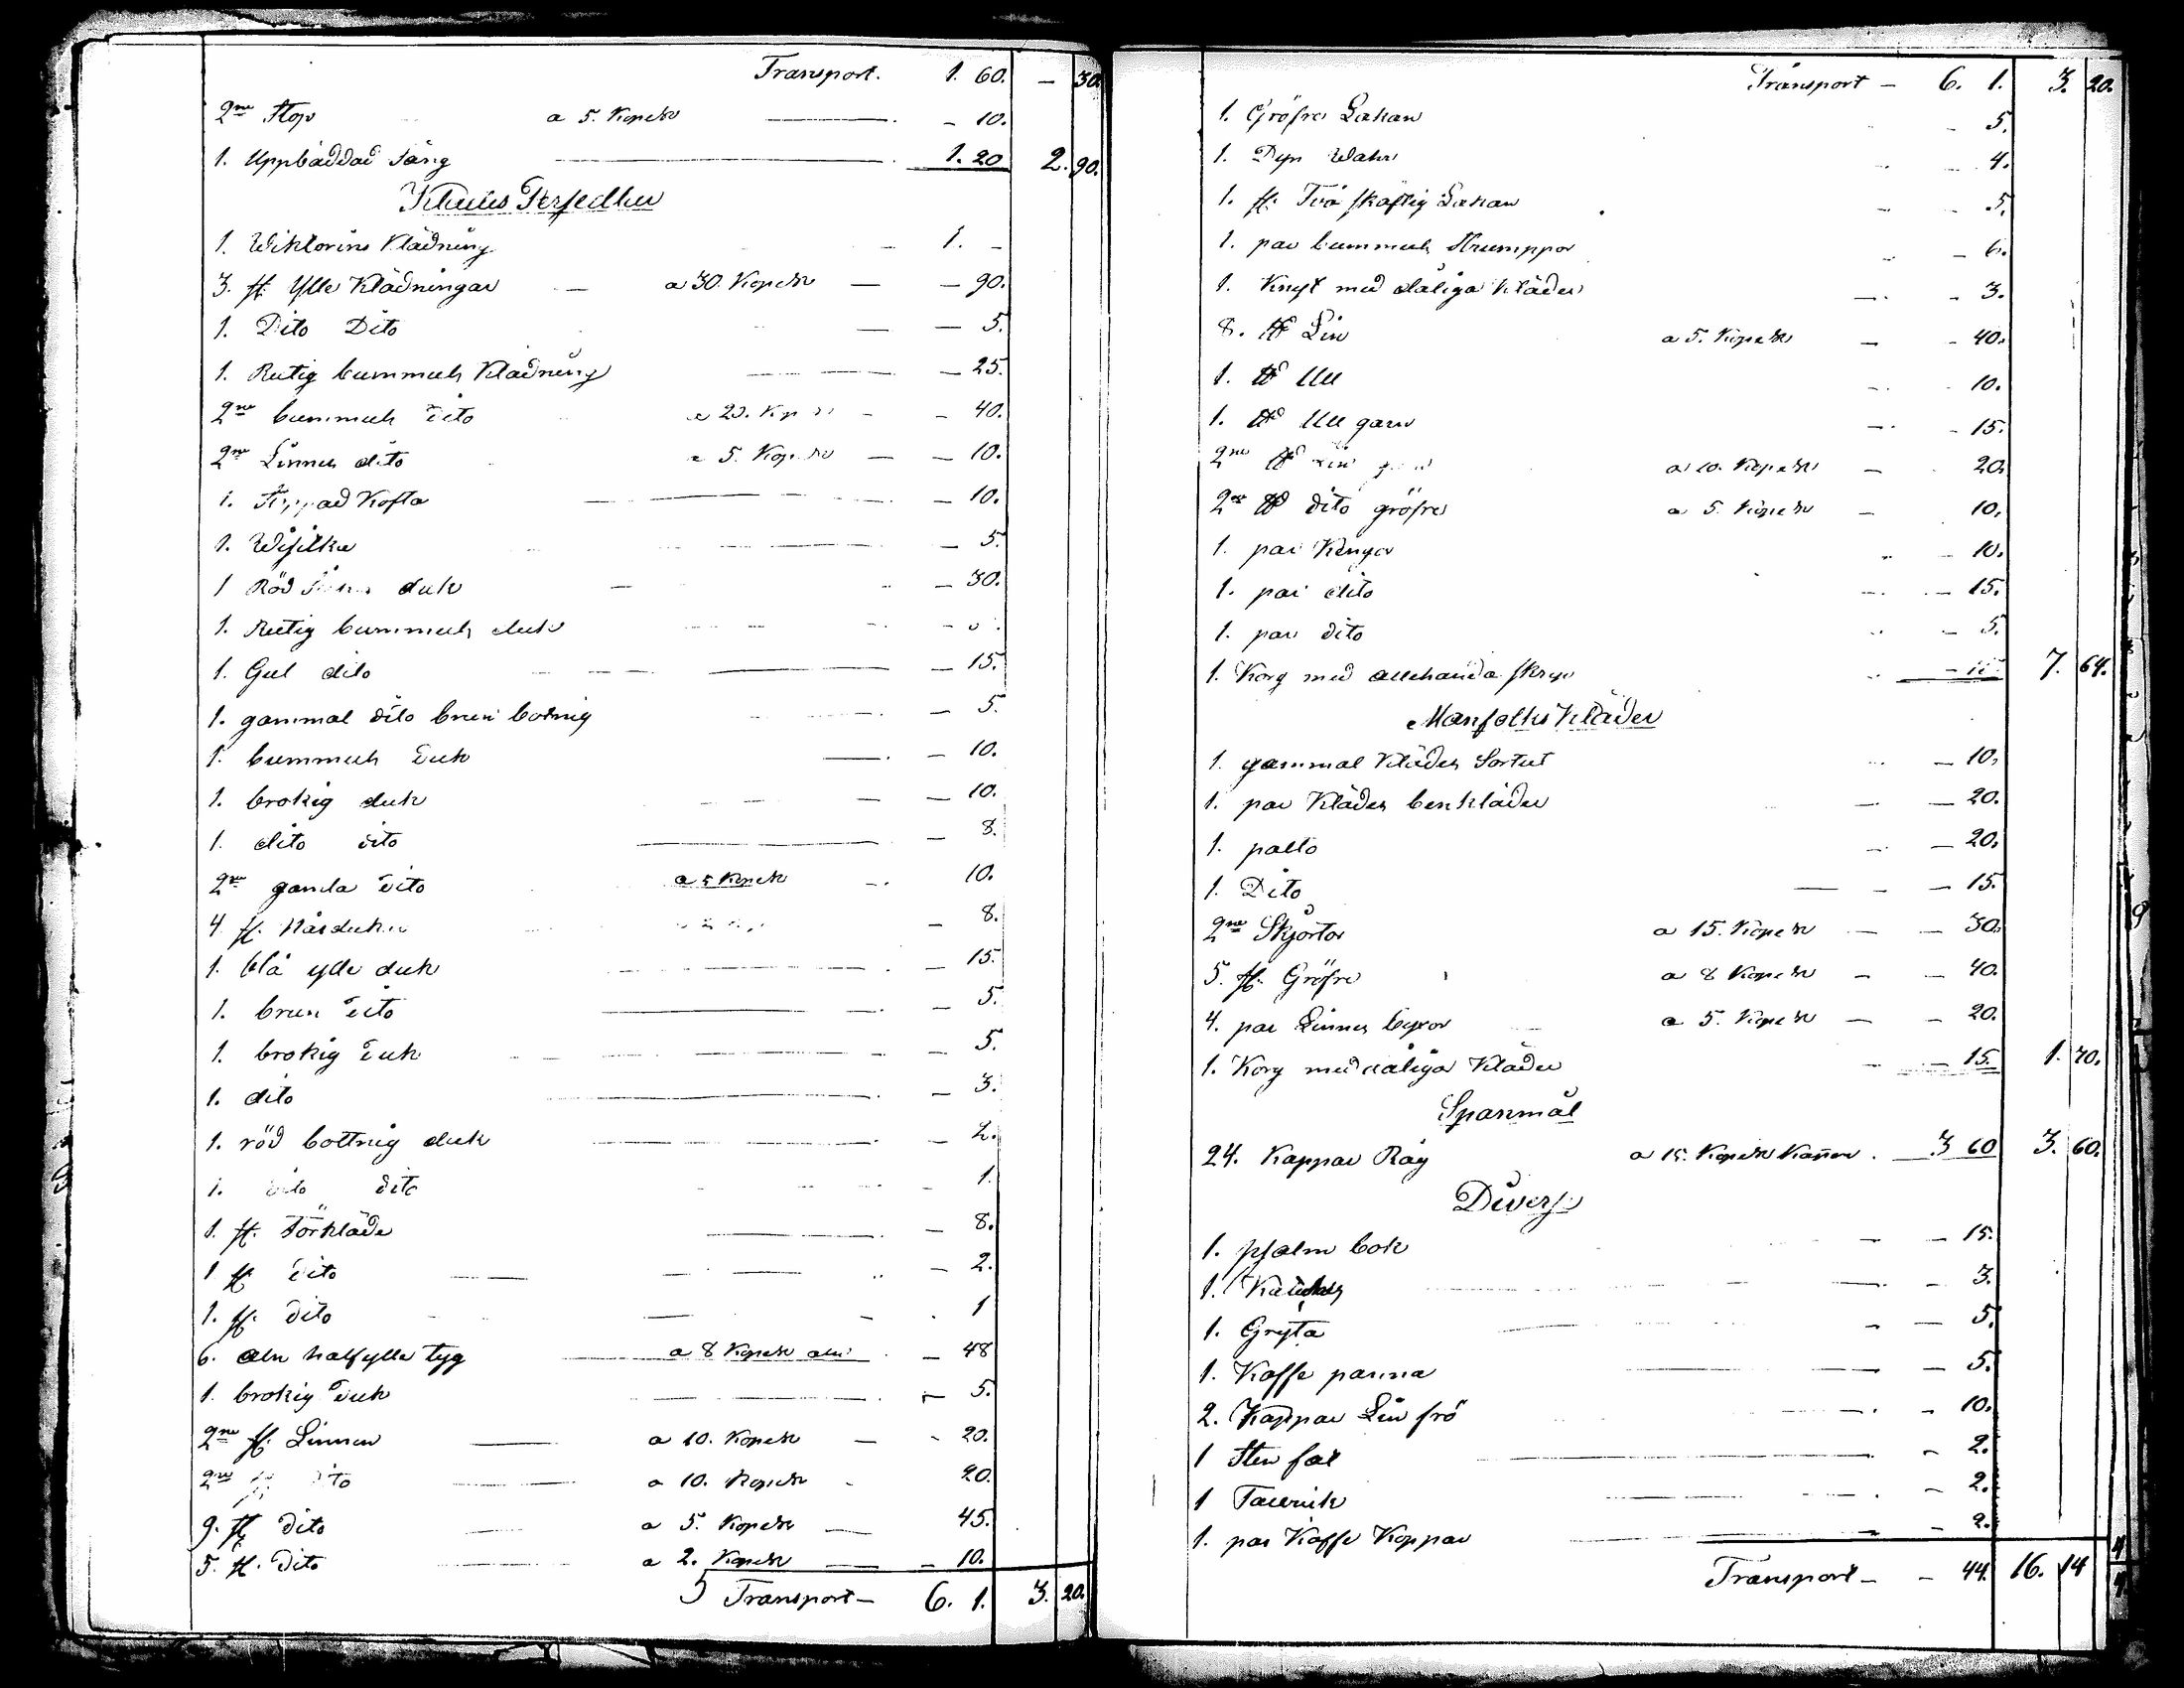 Transport. 1. 60. — 30.
2ne Stop a 5. Kopek — 10.
1. Uppbäddad Säng 1. 20 2. 90.
Klädes Persedlar
1. Wiktorins Klädning 1. —
3. st Ylle Klädningar — a 30. Kopek — — 90.
1. Dito Dito — — 5.
1. Rutig bummuls Klädning — 25.
2ne bummuls dito a 20. Kopek — — 40.
2ne Linnes dito a 5. Kopek — — 10.
1. Kofta — 10.
1. — 5.
1 Röd duk — — 30.
1. Rutig bummuls duk
1. Gul dito — 15.
1. gammal dito brun botnig — 5.
1. bummuls duk — 10.
1. brokig duk — — 10.
1. dito dito — 8.
2ne gamla dito a 5 Kopek — 10.
4 st. Hårdukar — 8.
1. blå ylle duk — 15.
1. brun dito — 5.
1. brokig duk — 5.
1. dito — 3.
1. röd bottnig duk — 2.
1. dito dito — 1.
1. st. Förkläde — 8.
1 st dito — 2.
1. st. dito — 1
6. aln halfylle tyg a 8 Kopek aln — 48
1. brokig duk — 5.
2ne st. Linnen a 10. Kopek — - 20.
2ne st dito a 10. Kopek 20.
9. st dito a 5. Kopek — 45.
5. st. dito a 2. Kopek — — 10.
Transport — 6. 1. 3. 20.
Transport — 6. 1. 3. 20.
1. Gröfre Lakan — 5.
1. Dyn Wahr — 4.
1. st. Två skäftig Lakan — 5.
1. par bummuls Strumppor — 6.
1. Knyt med dåliga Kläder — 3.
8. ℔ Lin a 5. Kopek — - 40.
1. ℔ Ull 10.
1. ℔ Ull garn - 15.
2ne ℔ Lin garn a 10. Kopek — 20.
2ne ℔ dito gröfre a 5 Kopek — 10.
1. par Kängor — 10.
1. par dito — 15.
1. par dito — 5.
1. Korg med allehanda skrap 7. 64.
Manfolks Kläder
1. gammal Klädes Sortut — 10.
1. par Klädes benkläder — 20.
1. palto — 20.
1. Dito — 15.
2ne Skjortor a 15. Kopek — — 30.
5. st. Gröfre a 8 Kopek — — 40.
4. par Linnes byxor a 5. Kopek — — 20.
1. Korg med dåliga Kläder — 15. 1. 70.
Spanmål
24. Kappar Råg a 15. Kopek Kappen. 3 60 3. 60.
Diverse
1. psalm bok — 15.
1. — 3.
1. Gryta — 5.
1. Kaffe panna — 5.
2. Kappar Lin frö — 10.
1 Sten fat — 2.
1 Tallrik — 2.
1. par Kaffe Koppar — 2.
Transport — — 44. 16. 14